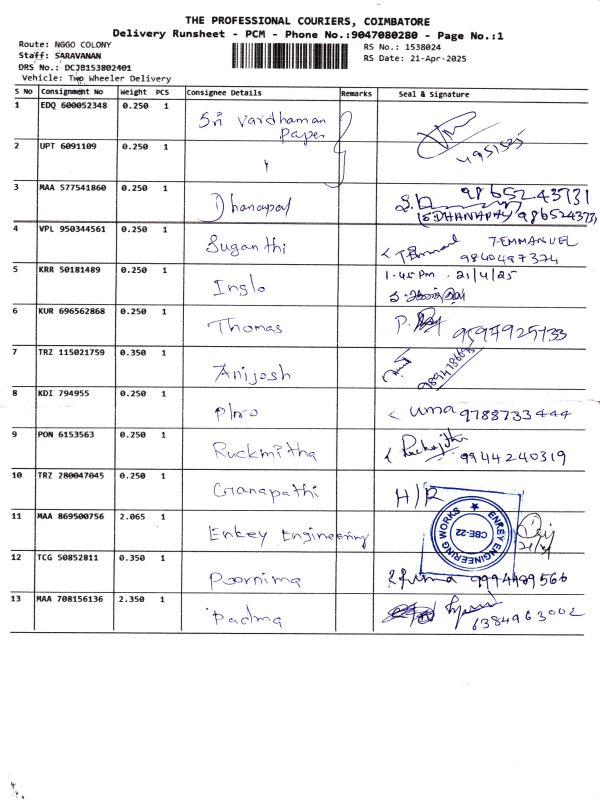 THE PROFESSIONAL COURIERS, COIMBATORE
Delivery Runsheet - PCM - Phone No.:9047080280 - Page No.:1
Route: NGGO COLONY
Staff: SARAVANAN
DRS No.: DCJB153802401
Vehicle: Two Wheeler Delivery
RS No.: 1538024
RS Date: 21-Apr-2025
S No Consignment No Weight PCS Consignee Details Remarks Seal & Signature
1 EDQ 600052348 0.250 1 Sri Vardhaman
Paper
2 UPT 6091109 0.250 1
3 MAA 577541860 0.250 1 Dhanapal 9865243731
(S DHANAPAL) 9865243731
4 VPL 950344561 0.250 1 Suganthi T.EMMANUEL
9840497374
5 KRR 50181489 0.250 1 Inglo 1.45 Pm 21/4/25
6 KUR 696562868 0.250 1 Thomas P. 9597925133
7 TRZ 115021759 0.350 1 Anijosh
8 KDI 794955 0.250 1 uma 9788733444
9 PON 6153563 0.250 1 Ruckmitha 9944240319
10 TRZ 280047045 0.250 1 Ganapathi H/R
11 MAA 869500756 2.065 1 Enkey Engineering ENKEY ENGINEERING WORKS
CBE-22
12 TCG 50852811 0.350 1 Poornima 9994489566
13 MAA 708156136 2.350 1 Padma 6384963002